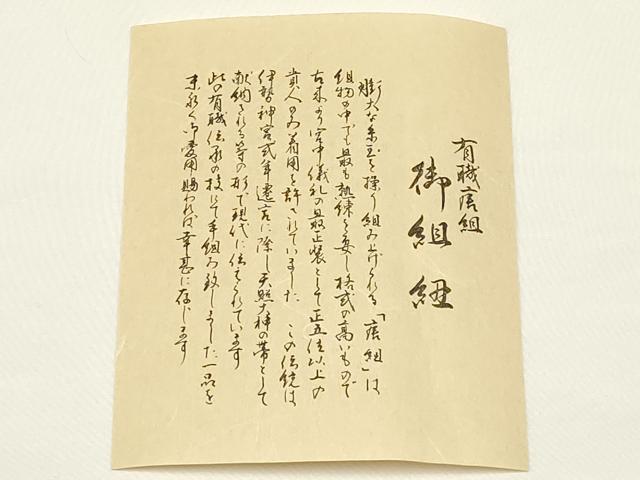 有職唐組
御組紐
膨大な糸玉を操り組み上げられる「唐組」は
組物の中でも最も熟練を要し格式の高いもので
古来より宮中儀礼の最正装として正五位以上の
貴人のみ着用を許されていました この伝統は
伊勢神宮式年遷宮に際し天照大神の帯として
献納される等の形で現代に伝えられています
此の有職伝承の技にて手組み致しました一品を
末永く御愛用賜われば幸甚に存じます